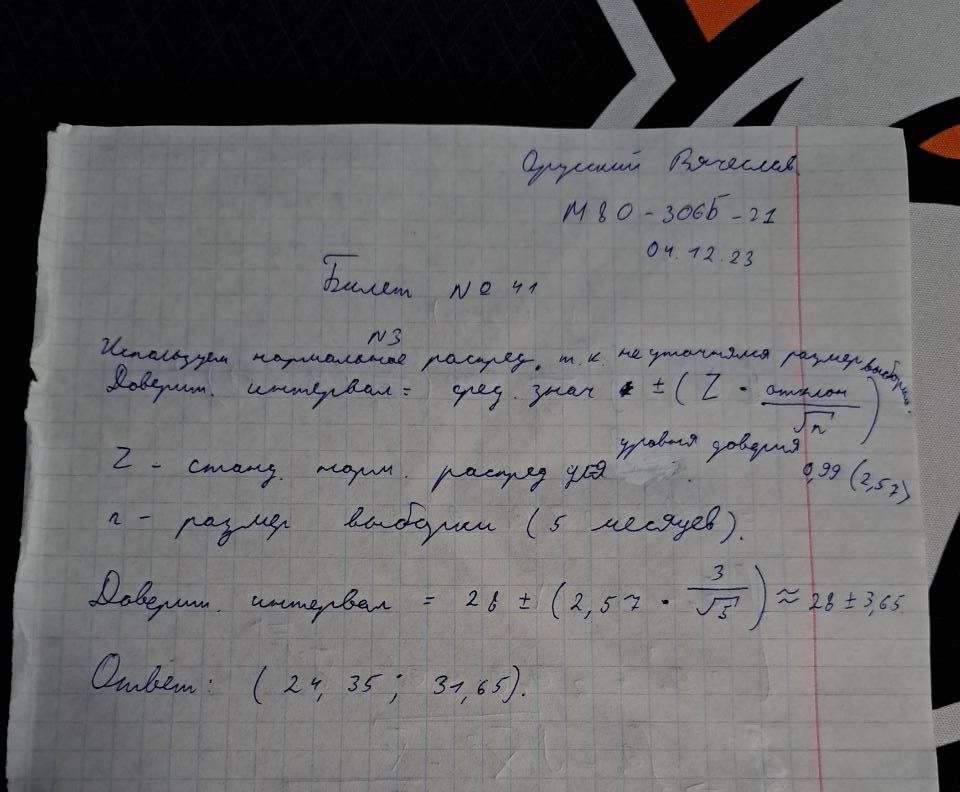 Вячеслав
М8О - 306Б - 21
04.12.23
Билет № 41
N3
Используем нормальное распред. т.к. не уточнялся размер выборки.
Доверит. интервал = сред. знач ± (Z · отклон / √n)
Z - станд. норм. распред для уровня доверия 0,99 (2,57)
n - размер выборки (5 месяцев).
Доверит. интервал = 28 ± (2,57 · 3 / √5) ≈ 28 ± 3,65
Ответ: (24,35; 31,65).